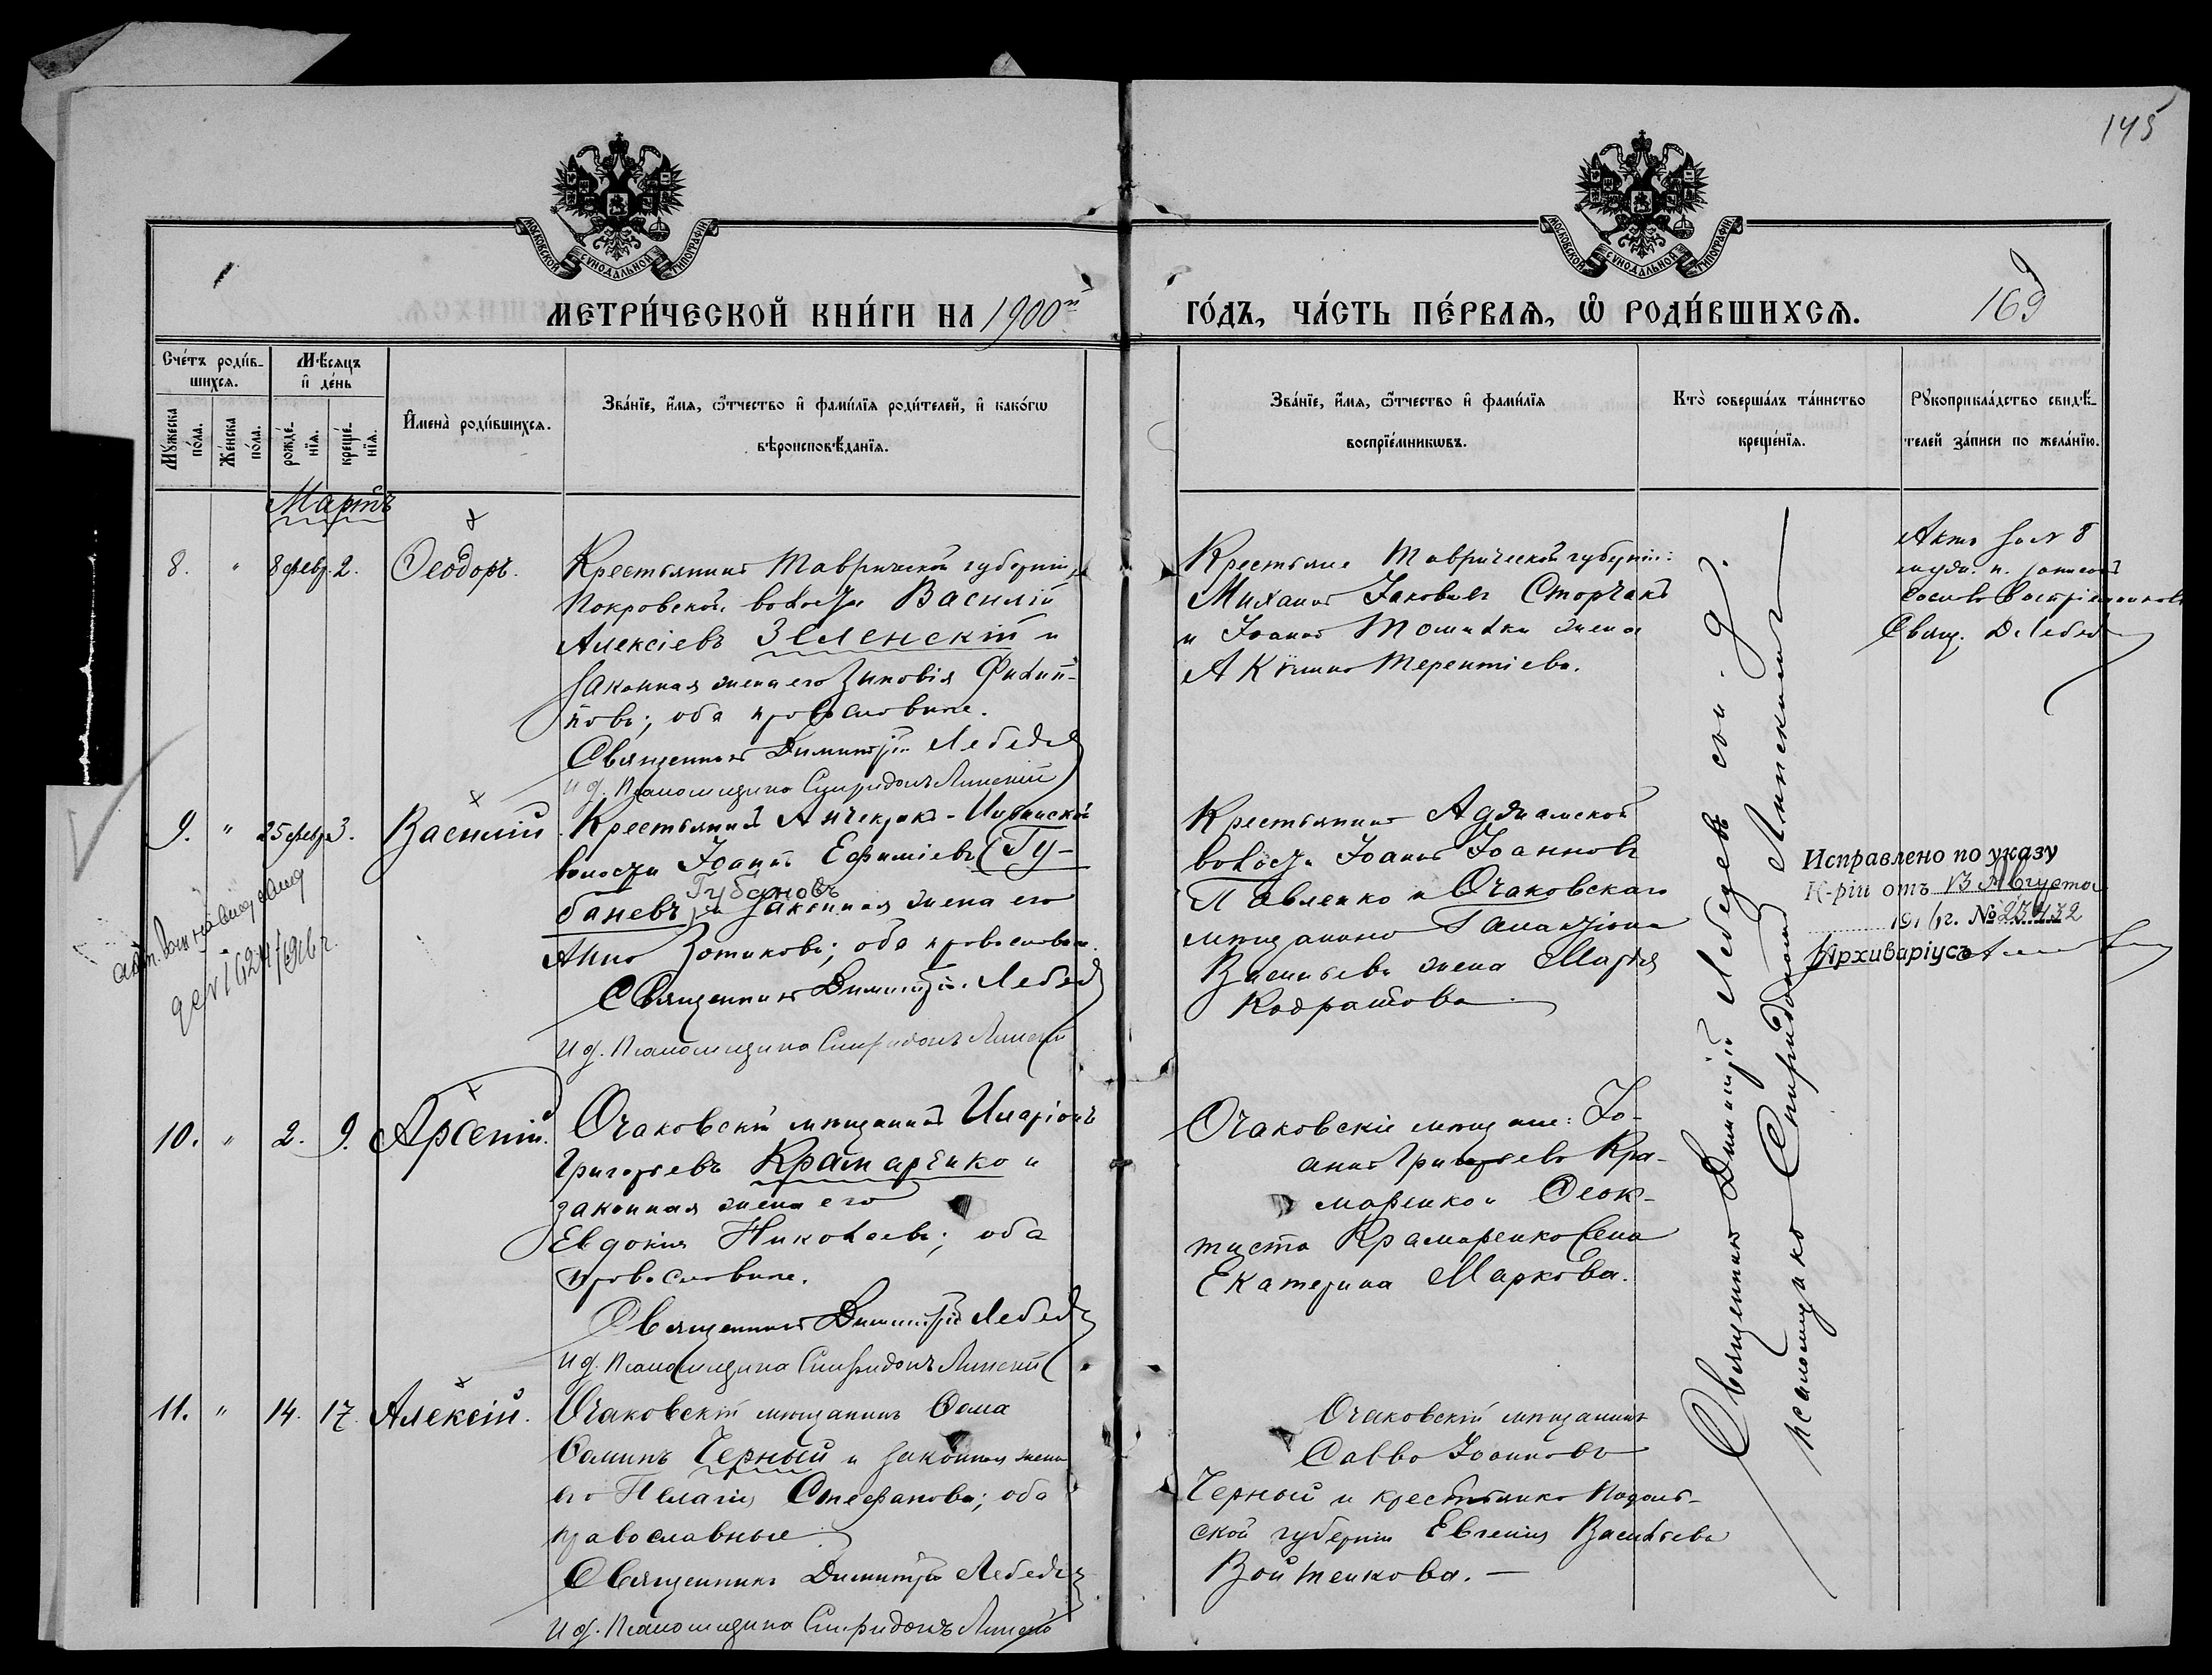 145
МОСКОВСКОЙ СѴНОДАЛЬНОЙ ТИПОГРАФІИ
МОСКОВСКОЙ СѴНОДАЛЬНОЙ ТИПОГРАФІИ
МЕТРИ́ЧЕСКОЙ КНИ́ГИ НА 1900й
ГО́ДЪ, ЧА́СТЬ ПЕ́РВАѦ, Ѡ РОДИ́ВШИХСѦ.
169
Сче́тъ роди́в-
шихсѧ.
Мꙋ́жеска
по́ла.
Же́нска
по́ла.
Мѣ́сѧцъ
и҆ де́нь
рожде́-
нїѧ.
креще́-
нїѧ.
И҆мена̀ роди́вшихсѧ.
Зва́нїе, и҆́мѧ, ѻ҆́тчество и҆ фами́лїѧ роди́телей, и҆ како́гѡ
вѣроисповѣ́данїѧ.
Зва́нїе, и҆́мѧ, ѻ҆́тчество и҆ фами́лїѧ
воспрїе́мникѡвъ.
Кто̀ соверша́лъ та́инство
креще́нїѧ.
Рꙋкоприкла́дство свидѣ́-
телей за́писи по жела́нїю.
Мартъ
8. " 8 февр. 2. Ѳеодоръ.
Крестьянинъ Таврической губерніи,
Покровской волости Василій
Алексіевъ Зеленскій и
законная жена его Зиновія Филип-
пова; оба православные.
Священникъ Димитрій Лебедев
И д. Псаломщика Спиридонъ Липскій
Крестьяне Таврической губерніи:
Михаилъ Іаковлев Сторчакъ
и Іоанна жена
Акилина Терентіева.
Актъ за № 8
Свящ. Д Лебедев
9. " 25 февр. 3. Василій
Крестьянинъ
волости Іоаннъ Ефиміевъ (Гу-
Губановъ
баневъ) и законная жена его
Анна Зотикова; оба православные.
Священникъ Димитрій Лебедев
И д. Псаломщика Спиридонъ Липскій
1624/1916 г.
Крестьянинъ Аджамской
волости Іоаннъ Іоанновъ
Павленко и Очаковскаго
мѣщанина
Васильева жена Марія
Кодратова
Исправлено по указу
К-ріи отъ 13 Августа
1916 г. № 23432
Архиваріусъ
10. " 2. 9. Арсеній.
Очаковскій мѣщанинъ Иларіонъ
Григорьевъ Крамаренко и
законная жена его
Евдокія Николаева; оба
православные.
Священникъ Димитрій Лебедев
И д. Псаломщика Спиридонъ Липскій
Очаковскіе мѣщане: Іо-
аннъ Григорьевъ Кра-
маренко и Ѳеок-
тиста Крамаренко жена
Екатерина Маркова.
11. " 14. 17. Алексій.
Очаковскій мѣщанинъ Ѳома
Ѳоминъ Черный и законная жена
его Пелагія Стефанова; оба
православные
Священникъ Димитрій Лебедев
И д. Псаломщика Спиридонъ Липскій
Очаковскій мѣщанинъ
Савва Іоанновъ
Черный и крестьянка Подоль-
ской губерніи Евгенія Васильева
Войтенкова.
Священникъ Димитрій Лебедевъ
псаломщика Спиридонъ Липскій